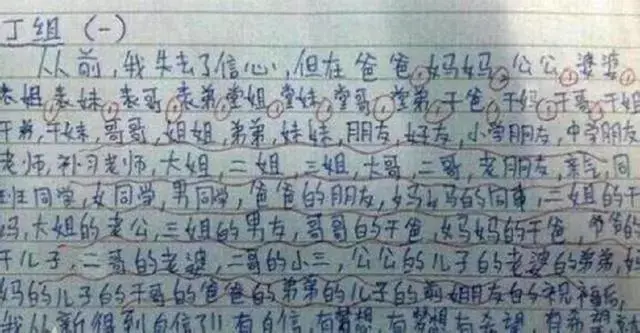 丁组 (一)
从前,我失去了信心,但在爸爸,妈妈,公公,婆婆,
表姐,表妹,表哥,表弟,堂姐,堂妹,堂哥,堂弟,干爸,干妈,干哥,干姐
干弟,干妹,哥哥,姐姐,弟弟,妹妹,朋友,好友,小学朋友,中学朋友
老师,补习老师,大姐,二姐,三姐,大哥,二哥,老朋友,亲气,同
班同学,女同学,男同学,爸爸的朋友,妈妈的同事,二姐的干
妈,大姐的老公,三姐的男友,哥哥的干爸,妈妈的干爸,爷爷的
干儿子,二哥的老婆,二哥的小三,公公的儿子的老婆的弟弟,妈
妈的儿子的干哥的爸爸的弟弟的儿子的前姐朋友的祝福后,
我从新得到自信了!!有自信,有梦想,有梦想有奇望,有奇想